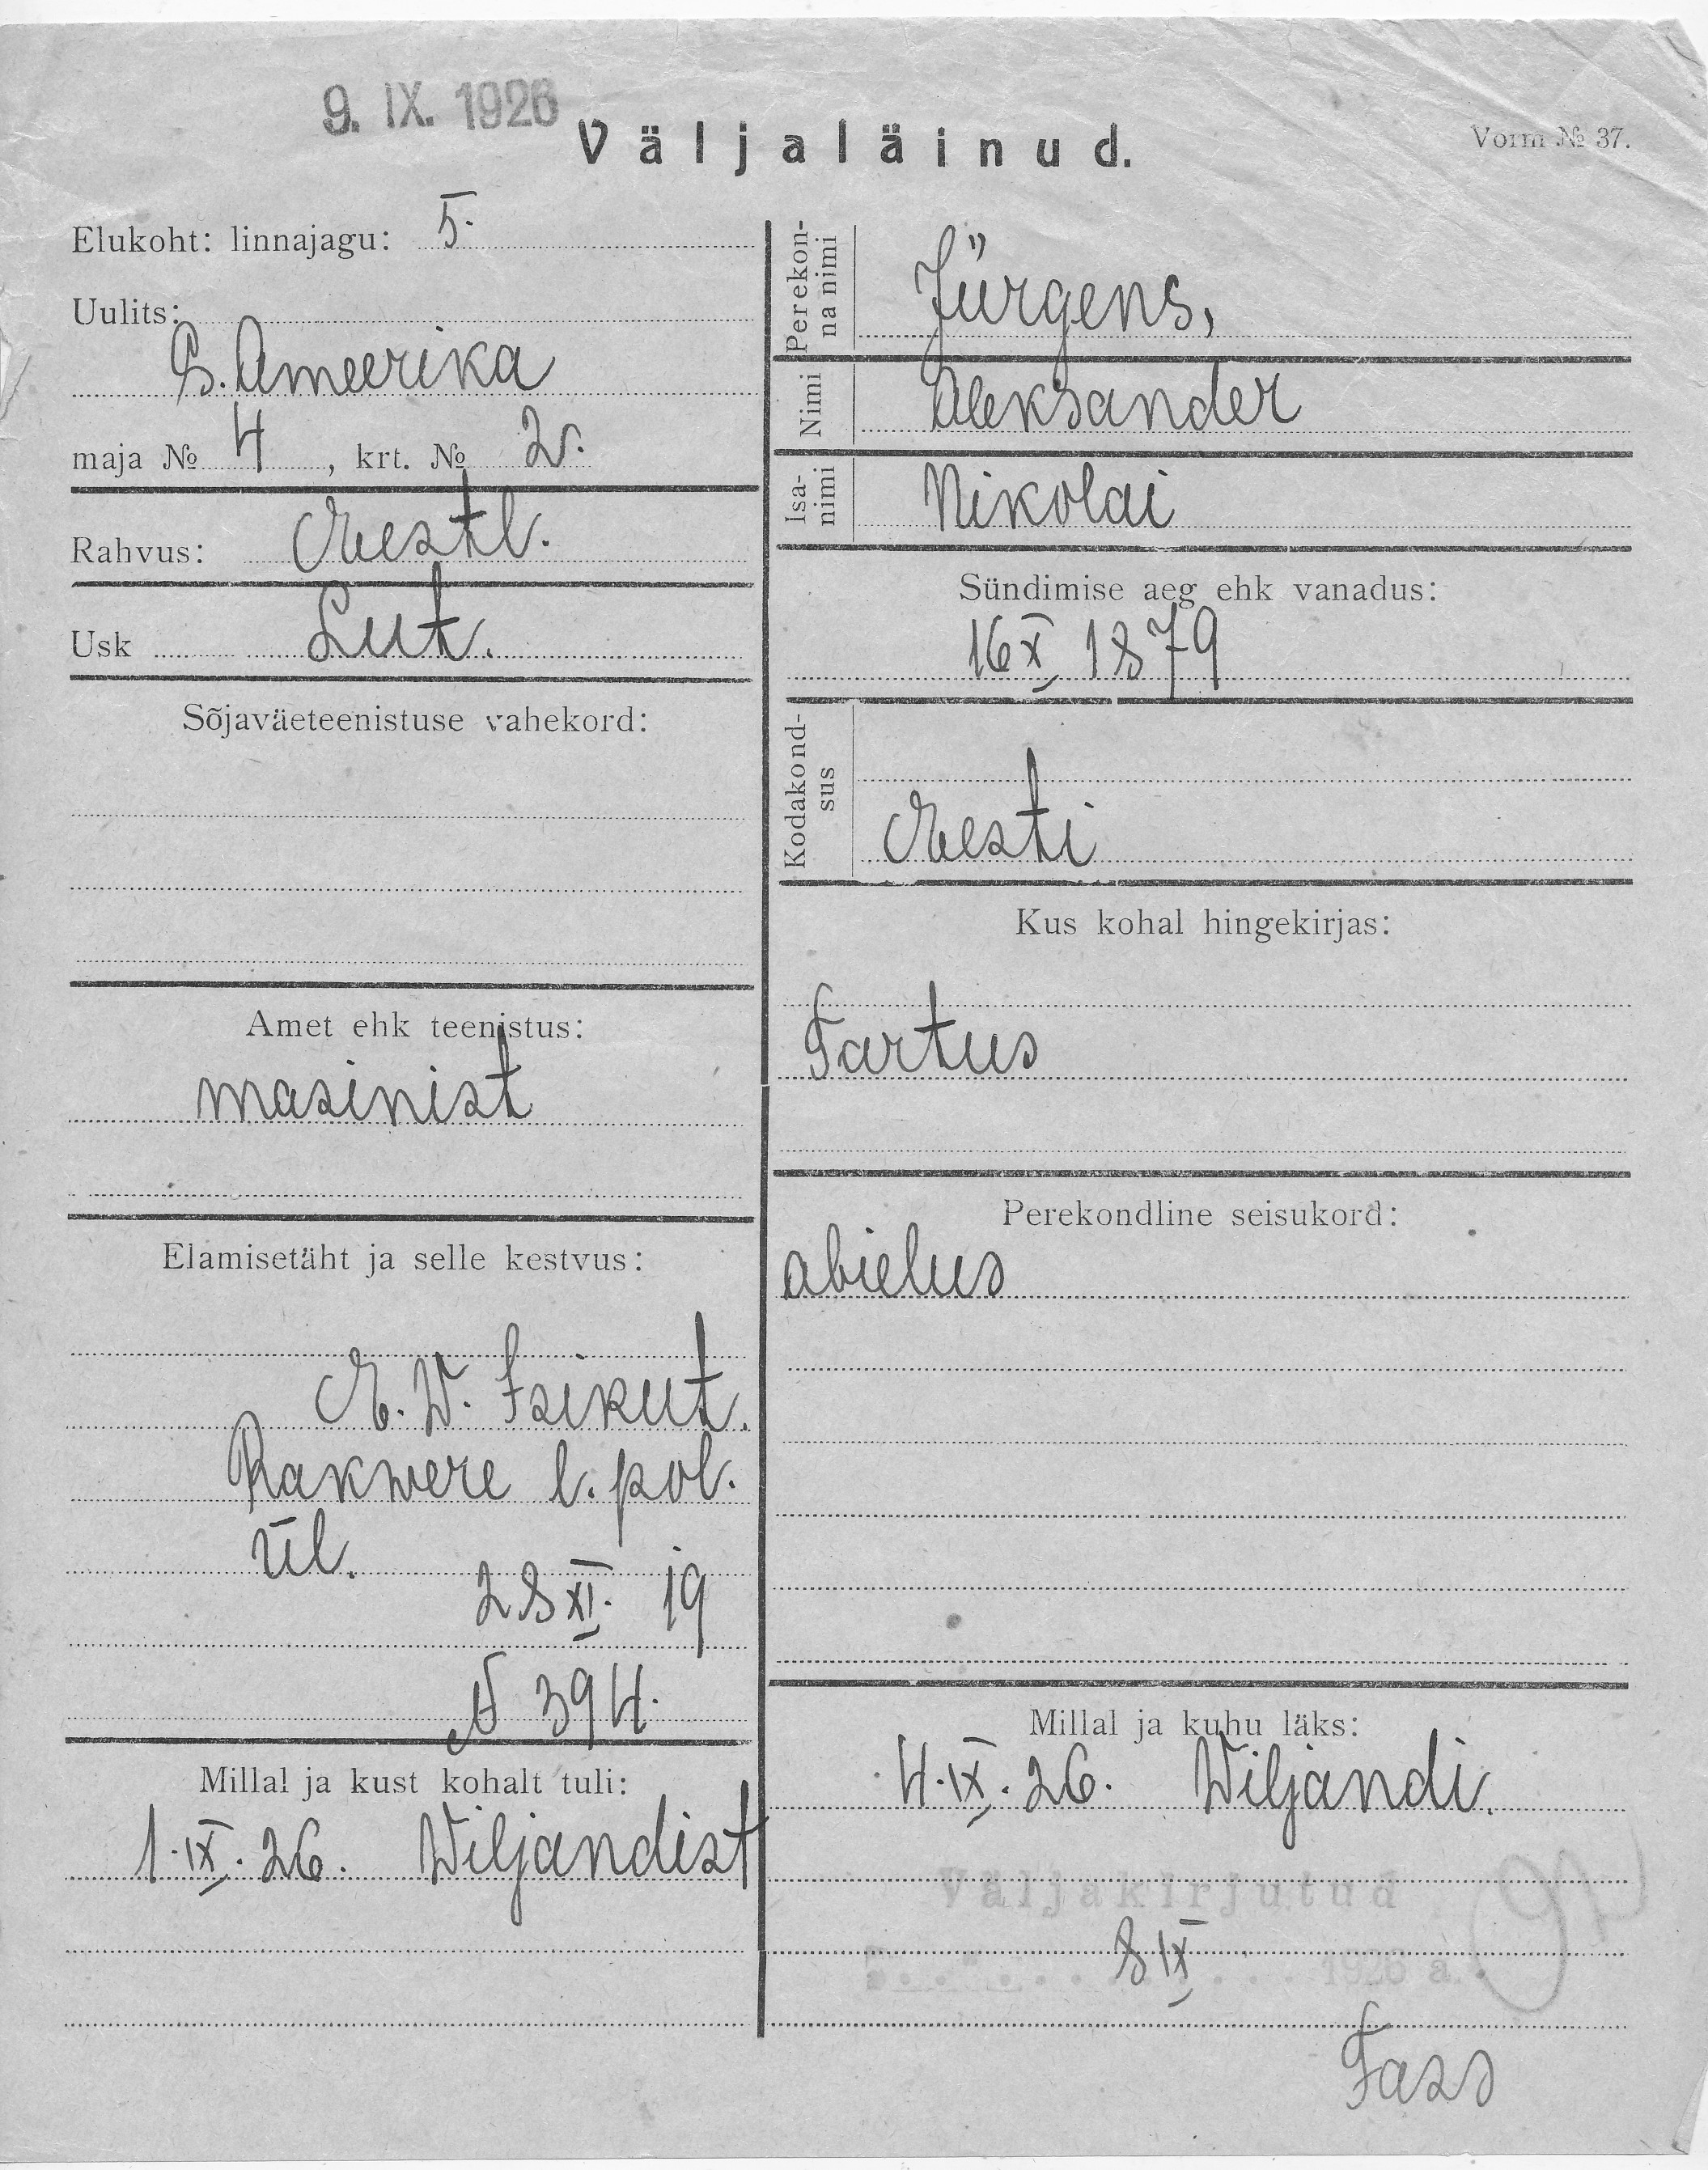 9. IX. 1926
Väljaläinud.
Vorm № 37.
Elukoht: linnajagu: 5.
Uulits:
S. Ameerika
maja № 4, krt. № 2.
Rahvus: Eestl.
Usk Lut.
Sõjaväeteenistuse vahekord:
Amet ehk teenistus:
masinist
Elamisetäht ja selle kestvus:
E. W. Isikut.
Rakwere l. pol.
ül.
28 XI. 19
№ 394.
Millal ja kust kohalt tuli:
1. IX. 26. Wiljandist
Perekon-
na nimi
Jürgens,
Nimi
Aleksander
Isa-
nimi
Nikolai
Sündimise aeg ehk vanadus:
16 X 1879
Kodakond-
sus
Eesti
Kus kohal hingekirjas:
Tartus
Perekondline seisukord:
abielus
Millal ja kuhu läks:
4. IX. 26. Wiljandi.
Väljakirjutud
8 IX 1926 a.
Tass